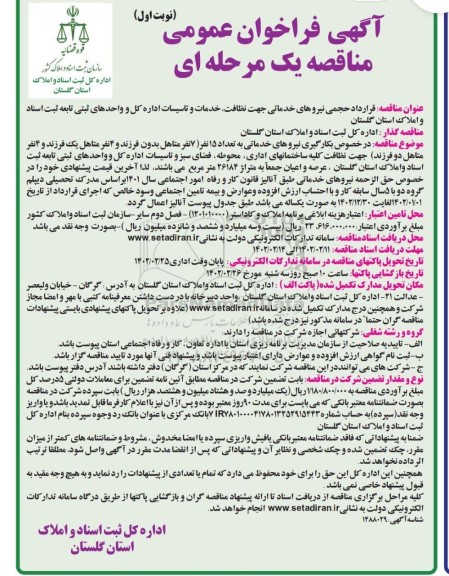 (نوبت اول)
آگهی فراخوان عمومی
مناقصه یک مرحله ای
قوه قضائیه
سازمان ثبت اسناد و املاک کشور
اداره کل ثبت اسناد و املاک
استان گلستان
عنوان مناقصه: قرارداد حجمی نیروهای خدماتی جهت نظافت، خدمات و تاسیسات اداره کل و واحدهای ثبتی تابعه ثبت اسناد
و املاک استان گلستان
مناقصه گذار: اداره کل ثبت اسناد و املاک استان گلستان
موضوع مناقصه: در خصوص بکارگیری نیروهای خدماتی به تعداد ۱۵ نفر (۷ نفر متاهل بدون فرزند و ۴ نفر متاهل یک فرزند و ۴ نفر
متاهل دو فرزند) جهت نظافت کلیه ساختمانهای اداری، محوطه، فضای سبز و تاسیسات اداره کل و واحدهای ثبتی تابعه ثبت
اسناد و املاک استان گلستان، عرصه و اعیان جمعاً به متراژ ۲۶۱۸۴ متر مربع می باشند، لذا آخرین قیمت پیشنهادی خود را در
خصوص حق الزحمه نیروهای خدماتی طبق آنالیز قانون کار و رفاه امور اجتماعی سال ۱۴۰۱ براساس مدرک تحصیلی دیپلم
گروه دو با ۵ سال سابقه کار و با احتساب ارزش افزوده و عوارض و بیمه تامین اجتماعی و سود خالص که اجرای قرارداد از تاریخ
۱۴۰۲/۰۱/۰۱ لغایت ۱۴۰۲/۱۲/۳۰ به صورت یکساله می باشد طبق جدول پیوست آنالیز اعمال گردد.
محل تامین اعتبار: اعتبار هزینه ابلاغی برنامه املاک و کاداستر (۱۳۰۱۰۱۰۰۰۰) - فصل دوم سایر-سازمان ثبت اسناد و املاک کشور
مبلغ برآوردی اعتبار: ۲۳,۶۱۶,۰۰۰,۰۰۰ ریال (بیست وسه میلیارد و ششصد و شانزده میلیون ریال) -بصورت وجه نقد می باشد
محل دریافت اسناد مناقصه: سامانه تدارکات الکترونیکی دولت به نشانی www.setadiran.ir
مهلت دریافت اسناد مناقصه: ۱۴۰۲/۰۲/۱۱ الی ۱۴۰۲/۰۲/۱۴
تاریخ تحویل پاکتهای مناقصه در سامانه تدارکات الکترونیکی: پایان وقت اداری ۱۴۰۲/۰۲/۲۵
تاریخ بازگشایی پاکتها: ساعت ۱۰ صبح روز سه شنبه مورخ ۱۴۰۲/۰۲/۲۶
مکان تحویل مدارک تکمیل شده (پاکت الف): اداره کل ثبت اسناد و املاک استان گلستان به آدرس: گرگان - خیابان ولیعصر
- عدالت ۲۱- اداره کل ثبت اسناد و املاک استان گلستان، واحد دبیرخانه با در دست داشتن معرفینامه کتبی با مهر و امضا مجاز
شرکت و همچنین درج مدارک تکمیل شده در سامانه www.setadiran.ir (علاوه بر تحویل پاکتهای پیشنهادی بایستی پیشنهادات
مناقصه گران حتماً در سامانه مذکور نیز درج شده باشد)
گروه و رشته شغلی: شرکتهائی اجازه شرکت در مناقصه را دارند:
الف - تاییدیه صلاحیت از سازمان مدیریت برنامه ریزی استان یا اداره تعاون، کار و رفاه اجتماعی استان پیوست باشد.
ب - ثبت نام گواهی ارزش افزوده و عوارض دارای اعتبار پیوست باشد و پیشنهاد فنی آنها مورد تایید مناقصه گزار باشد.
ج - شرکت های می توانند در این مناقصه شرکت نمایند که در مرکز استان (گرگان) دفتر داشته باشند آدرس دفتر پیوست باشد.
نوع و مقدار تضمین شرکت در مناقصه: بابت تضمین شرکت در مناقصه مطابق آئین نامه تضمین برای معاملات دولتی ۵ درصد کل
مبلغ برآوردی مناقصه به ۱,۱۸۰,۸۰۰,۰۰۰ ریال (یک میلیارد و صد و هشتاد میلیون و هشتصد هزار ریال) بابت سپرده شرکت در مناقصه
بصورت ضمانتنامه معتبر بانکی که می بایست برای مدت ۹۰ روز معتبر بوده و پس از آن نیز با اعلام کارفرما قابل تمدید باشد و یا واریز
وجه نقد (سپرده) به حساب شماره بانک مرکزی با عنوان بانک رد وجوه سپرده بنام اداره کل
ثبت اسناد و املاک استان گلستان
ضمناً به پیشنهاداتی که فاقد ضمانتنامه معتبر بانکی یا فیش واریزی سپرده یا امضا مخدوش، مشروط و ضمانتنامه های کمتر از میزان
مقرر، چک تضمین شده و چک شخصی و نظایر آن و پیشنهاداتی که پس از انقضا مدت مقرر در آگهی واصل شود، مطلقاً ترتیب
اثر داده نخواهد شد.
همچنین این اداره کل این حق را برای خود محفوظ می دارد که تمام یا تعدادی از پیشنهادات را رد نماید و به هیچ وجه مقید به
قبول پیشنهاد خاصی نمی باشد.
کلیه مراحل برگزاری مناقصه از دریافت اسناد تا ارائه پیشنهاد مناقصه گران و بازگشایی پاکتها از طریق درگاه سامانه تدارکات
الکترونیکی دولت به نشانی www.setadiran.ir انجام خواهد شد.
شناسه آگهی: ۱۴۸۸۰۲۹
اداره کل ثبت اسناد و املاک
استان گلستان